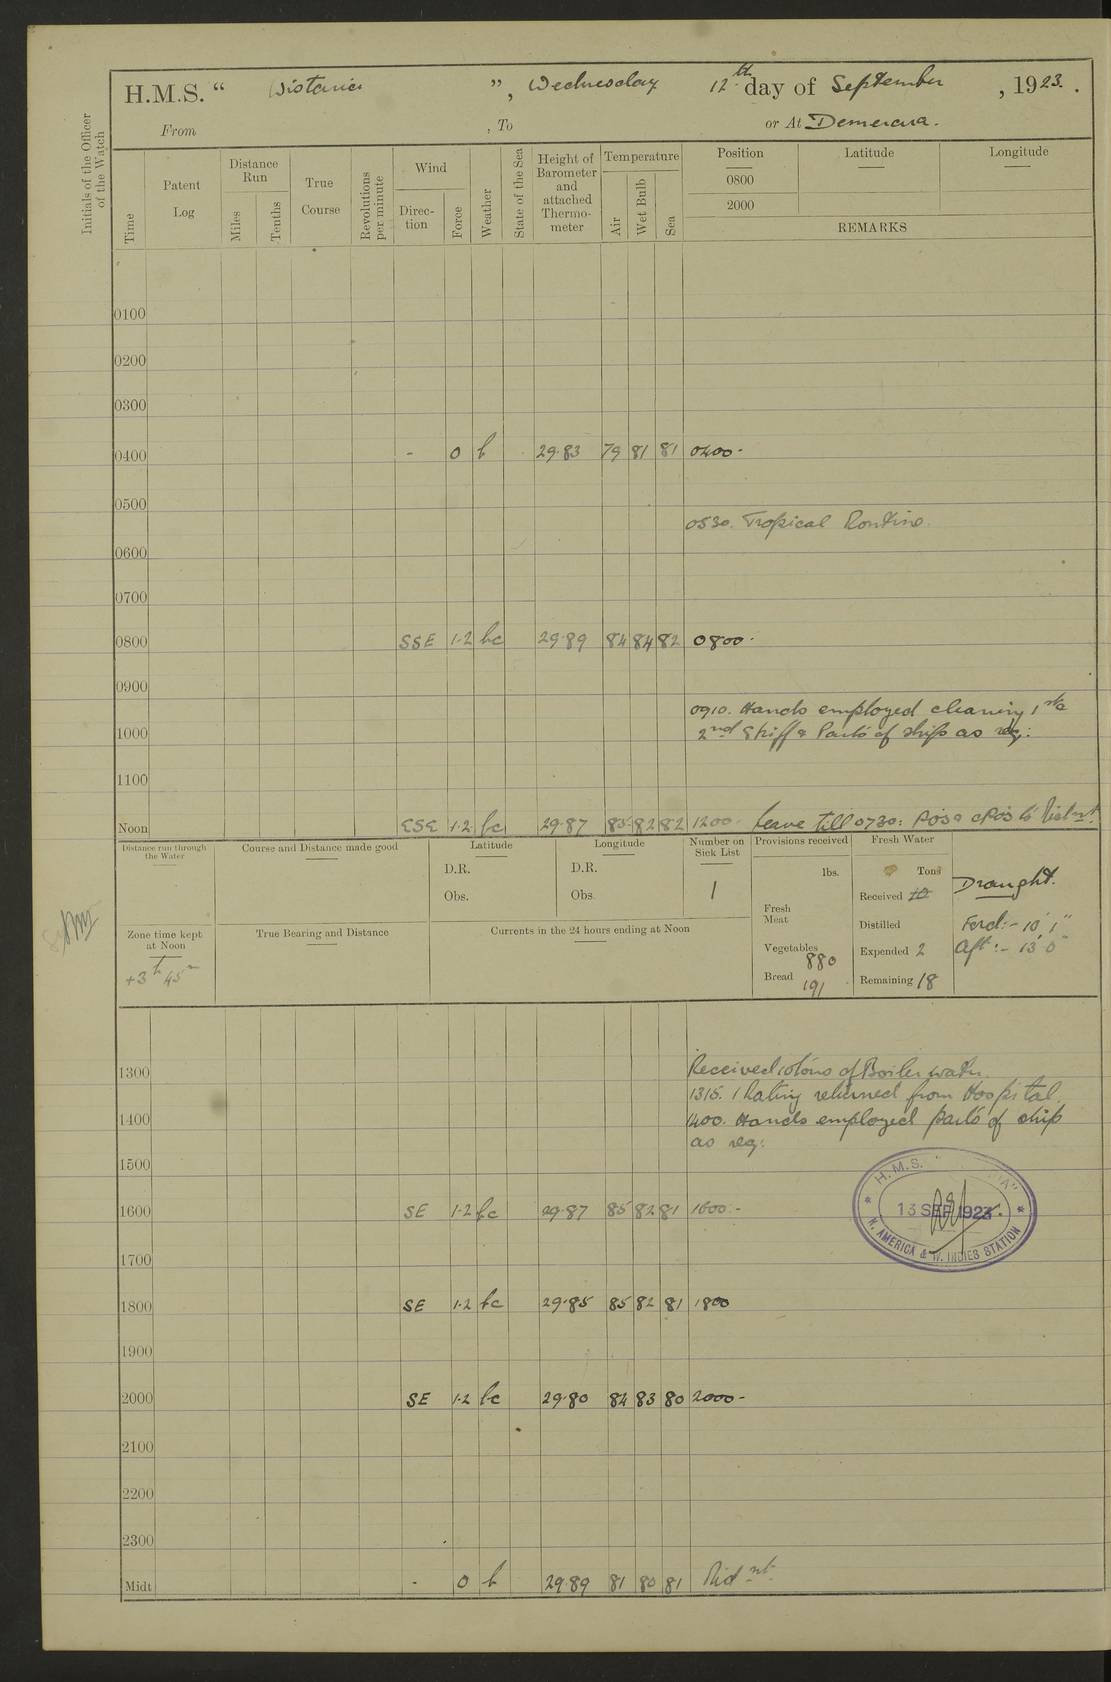 H.M.S. “ Wistaria ”, Wednesday 12th day of September, 1923.
From , To or At Demerara.
Initials of the Officer of the Watch
Time
Patent Log
Distance Run
Miles
Tenths
True Course
Revolutions per minute
Wind
Direction
Force
Weather
State of the Sea
Height of Barometer and attached Thermometer
Temperature
Air
Wet Bulb
Sea
Position Latitude Longitude
0800
2000
REMARKS
0100
0200
0300
0400 - 0 b 29.83 79 81 81 0400-
0500
0530. Tropical Routine.
0600
0700
0800 SSE 1.2 bc 29.89 84 84 82 0800.
0900
0910. Hands employed cleaning 1st &
1000 2nd Skiff & Parts of ship as req:
1100
Noon ESE 1.2 bc 29.87 85 82 82 1200. Leave till 0730: POs & CPOs to
Distance run through the Water
Course and Distance made good
Latitude
D.R.
Obs.
Longitude
D.R.
Obs.
Number on Sick List
1
Provisions received
lbs.
Fresh Meat
Vegetables 880
Bread 191
Fresh Water
Tons
Received 10
Distilled
Expended 2
Remaining 18
Draught.
Ford:- 10' 1"
Aft:- 13' 0"
Zone time kept at Noon
+3h 45m
True Bearing and Distance
Currents in the 24 hours ending at Noon
1300 Received 10 tons of Boiler water.
1315. 1 Rating returned from Hospital.
1400 1400. Hands employed parts of ship
as req:
1500
1600 SE 1.2 bc 29.87 85 82 81 1600.-
H.M.S. "
13 SEP 1923
N. AMERICA & W. INDIES STATION
1700
1800 SE 1.2 bc 29.85 85 82 81 1800
1900
2000 SE 1.2 bc 29.80 84 83 80 2000-
2100
2200
2300
Midt - 0 b 29.89 81 80 81 Midnt.